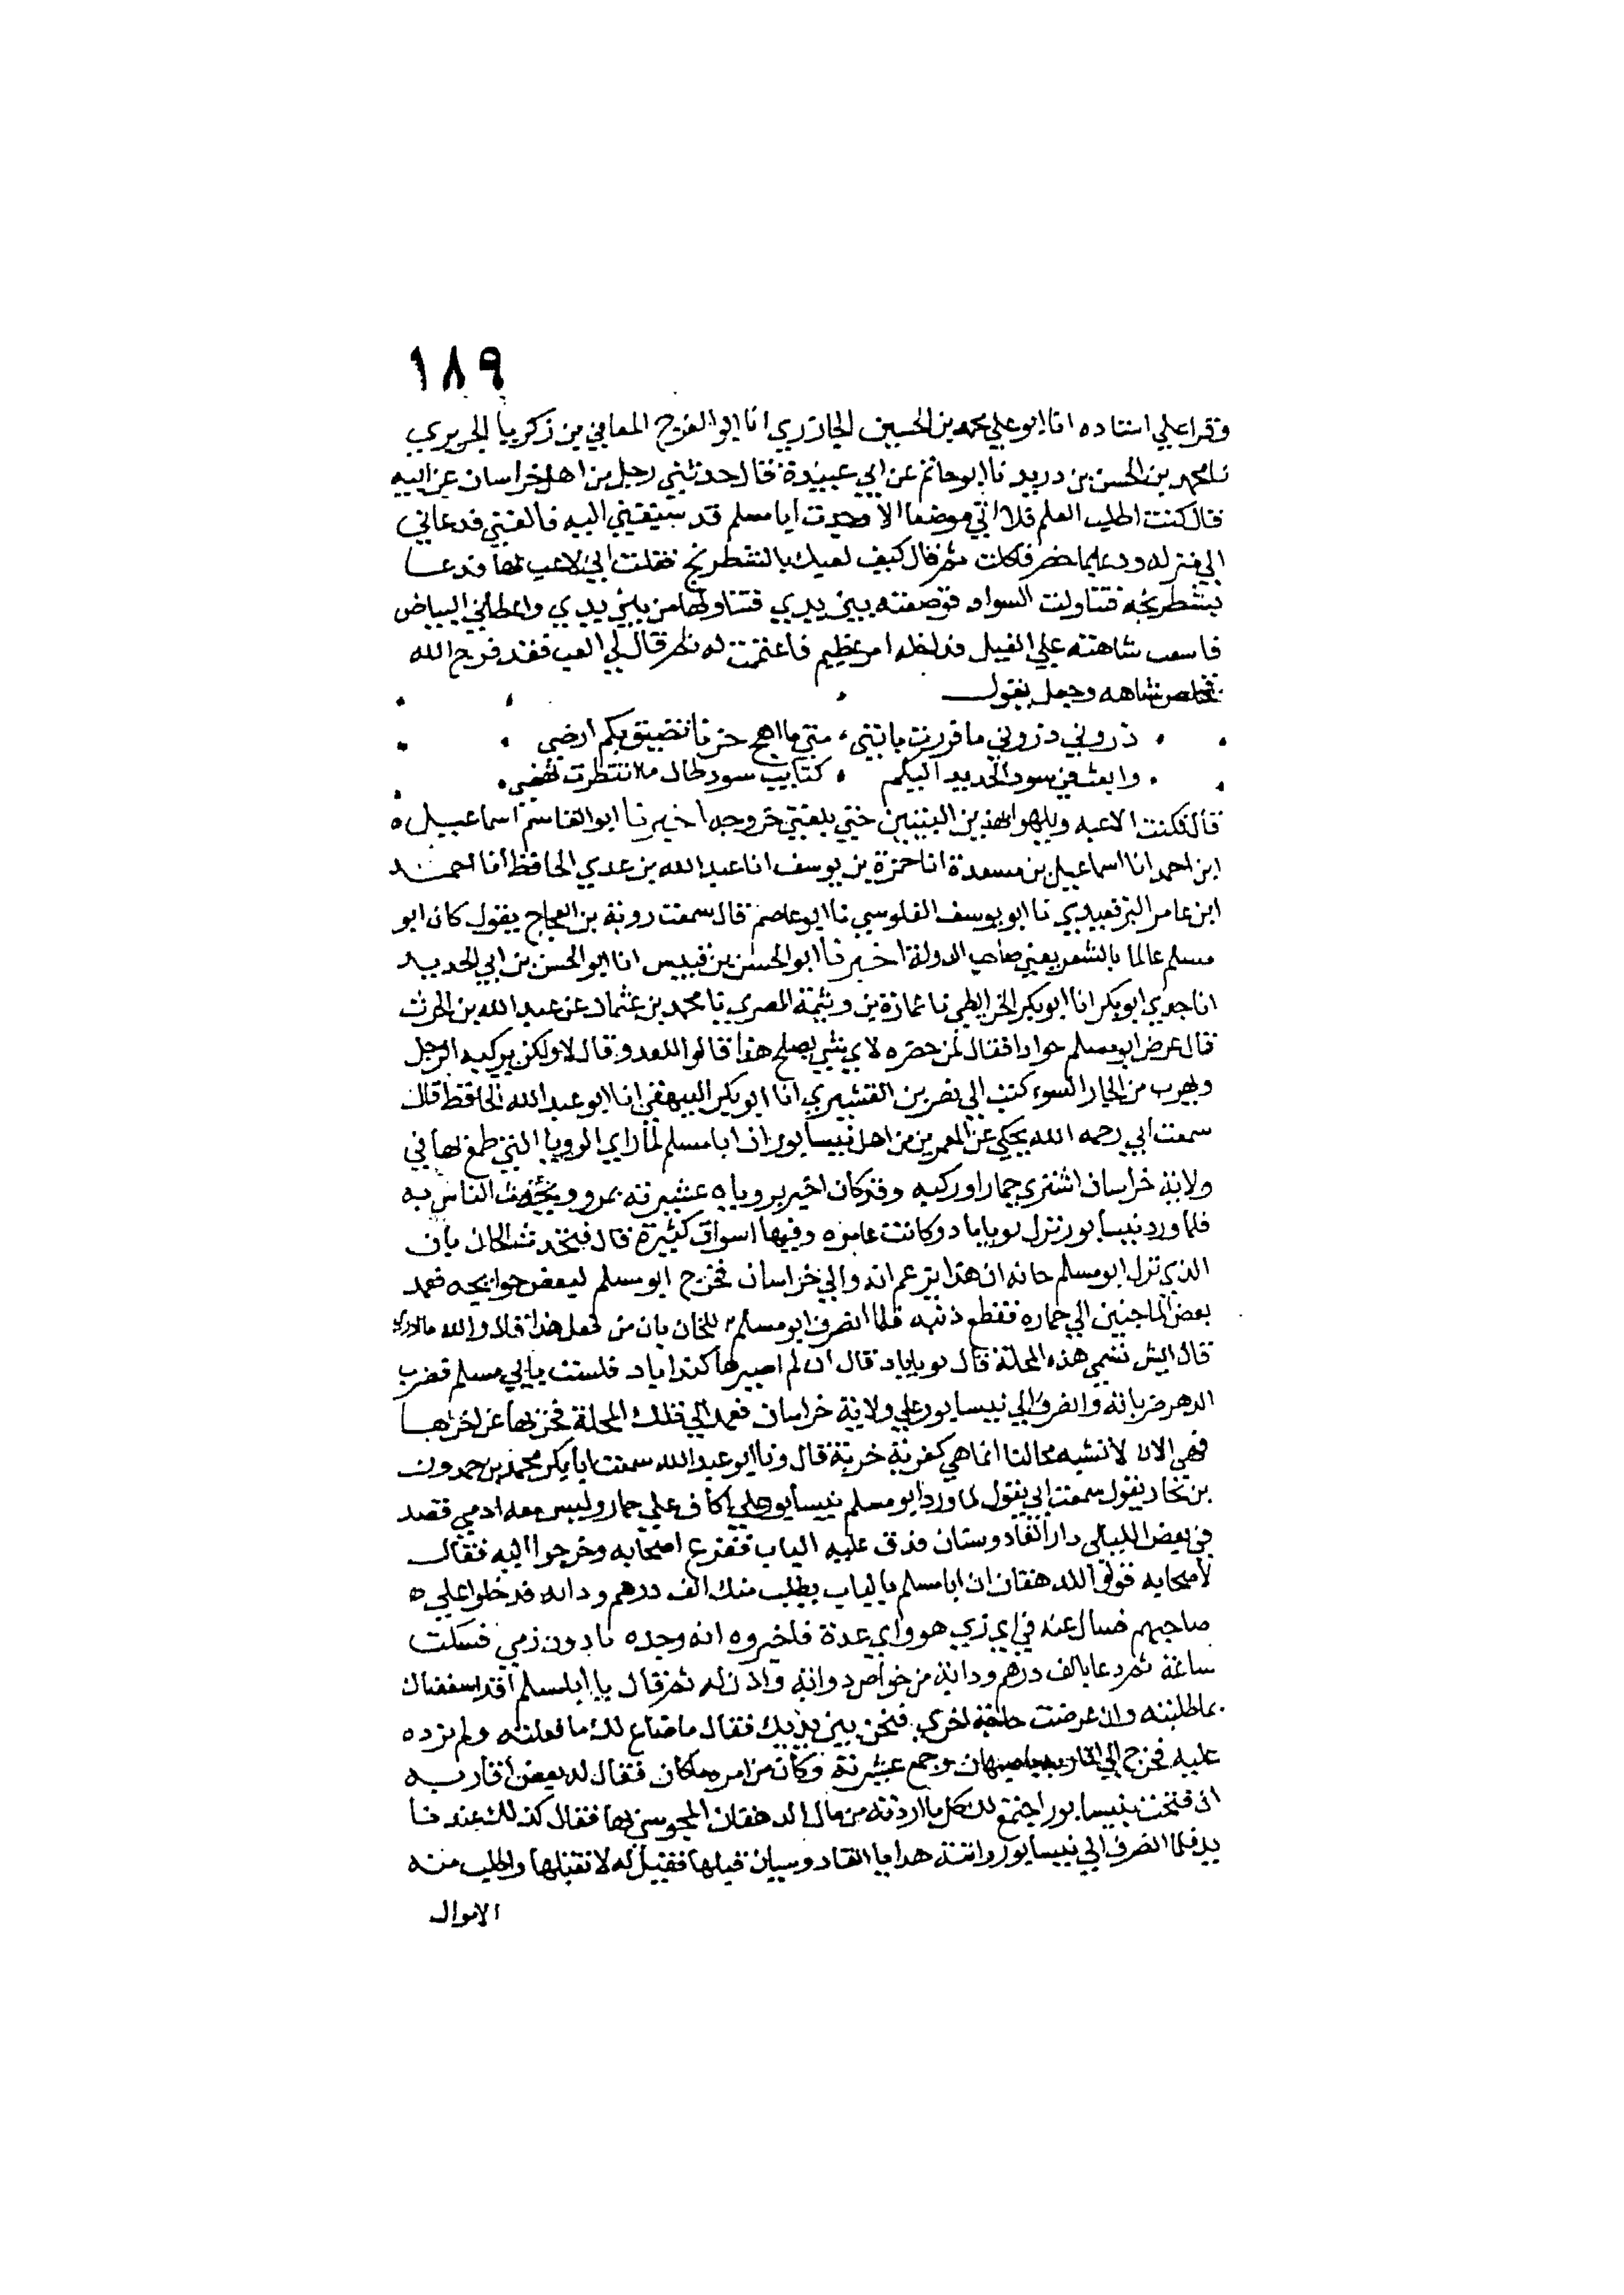 ١٨٩
وقرا علي اسناده انا ابو علي محمد بن الحسين الجازري انا ابو الفرج المعافي بن زكريا الجريري
نا محمد بن الحسن بن دريد نا ابو حاتم عن ابي عبيدة قال حدثني رجل من اهل خراسان عن ابيه
قال كنت اطلب العلم فلا اتي موضعا الا وجدت ابا مسلم قد سبقني اليه فالفني فدعاني
الي منزله ودعا بما حضر فاكلت ثم قال كيف لعبك بالشطرنج فقلت اني لاعب بها فدعا
بشطرنجه فتناولت السواد فوضعته بين يدي فتناولها من بين يدي واعطاني البياض
شاهته علي الفيل فدخله امر عظيم فاغتممت له ثم قال لي العب فقد فرج الله
فتخلص شاهه وجعل يقول
ذروني ذروني ما قررت فانني متي ما اهج حربا تضيق بكم ارضي
وابعث في سود الحديد اليكم كتايب سود طال ما انتظرت نهضي
قال فكنت الاعبه ويلهوا بهذين البيتين حتي بلغني خروجه اخبرنا ابو القاسم اسماعيل
ابن احمد انا اسماعيل بن مسعدة انا حمزة بن يوسف انا عبد الله بن عدي الحافظ انا احمد
ابن عامر البرقعيدي نا ابو يوسف القلوسي نا ابو عاصم قال سمعت روبة بن العجاج يقول كان ابو
مسلم عالما بالشعر يعني صاحب الدولة اخبرنا ابو الحسن بن قبيس انا ابو الحسن بن ابي الحديد
انا جدي ابو بكر انا ابو بكر الخرايطي نا عمارة بن وثيمة المصري نا محمد بن عثمان عن عبد الله بن الحرث
قال عرض ابو مسلم جوادا فقال لمن حضره لاي شي يصلح هذا قالوا للعدو قال لا ولكن يركبه الرجل
ويهرب من الجار السوء كتب الي نصر بن القشيري انا ابو بكر البيهقي انا ابو عبد الله الحافظ قال
سمعت ابي رحمه الله يحكي عن المعمرين من اهل نيسابور ان ابا مسلم لما راي الرويا التي طمع بها في
ولاية خراسان اشتري حمارا وركبه وقد كان اخبر بروياه عشيرته بمرو ويتحدث الناس به
فلما ورد نيسابور نزل بوياباد وكانت عامره وفيها اسواق كثيرة قال فتحدث الخان بان
الذي نزل ابو مسلم خانه ان هذا يزعم انه والي خراسان فخرج ابو مسلم لبعض حوايجه فعمد
بعض الماجنين الي حماره فقطع ذنبه فلما انصرف ابو مسلم للخان بان من فعل هذا قال والله ما ادري
قال ايش تسمي هذه المحلة قال بوياباد قال ان لم اصيرها كنداباد فلست بابي مسلم فضرب
الدهر ضربانه وانصرف الي نيسابور علي ولاية خراسان فعمد الي تلك المحلة فخربها عن اخرها
فهي الان لا تشبه محالنا انما هي كقرية خربة قال ونا ابو عبد الله سمعت ابا بكر محمد بن حمدون
بن يقول سمعت ابي يقول لما ورد ابو مسلم نيسابور علي اكاف علي حمار وليس معه ادمي فقصد
في بعض الليالي دار الفادوسبان فدق عليه الباب ففزع اصحابه وخرجوا اليه فقال
لاصحابه قولوا للدهقان ان ابا مسلم بالباب يطلب منك الف درهم ودابه فدخلوا علي
صاحبهم فسال عنه في اي زي هو واي عدة فاخبروه انه وحده بادون زي فسكت
ساعة ثم دعا بالف درهم ودابة من خواص دوابه واذن له ثم قال يا ابا مسلم قد اسعفناك
بما طلبته وان عرضت حاجة اخري فنحن بين يديك فقال ما ضاع لك ما فعلته ولم يزده
عليه فخرج الي اقاربه باصبهان وجمع عشيرته وكان من امره ما كان فقال له بعض اقاربه
ان فتحت نيسابور اجتمع لك كل ما اردته من مال الدهقان المجوسي بها فقال كذلك عندنا
يد فلما انصرف الي نيسابور اتته هدايا الفادوسبان فقبلها فقيل له لا تقبلها واطلب منه
الاموال